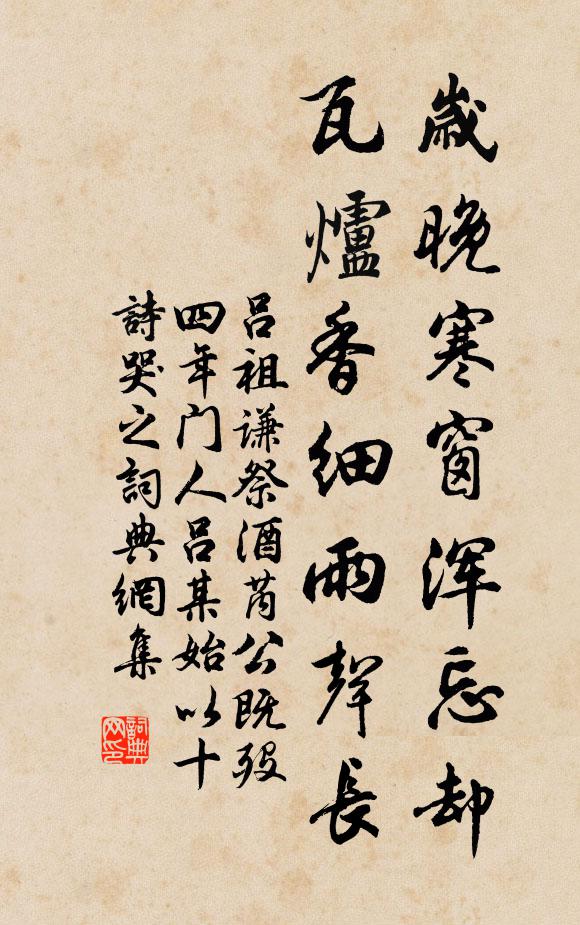 歲晚寒窗渾忘却
瓦爐香細雨聲長
呂祖谦祭酒芮公既殁
四年门人吕某始以十
詩哭之詞典網集
詞典网印